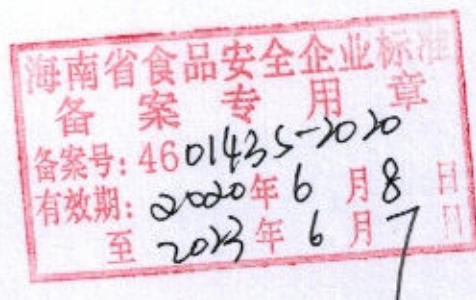 海南省食品安全企业标准
备案专用章
备案号: 46 01435-2020
有效期: 2020年6月8日
至 2023年6月7日